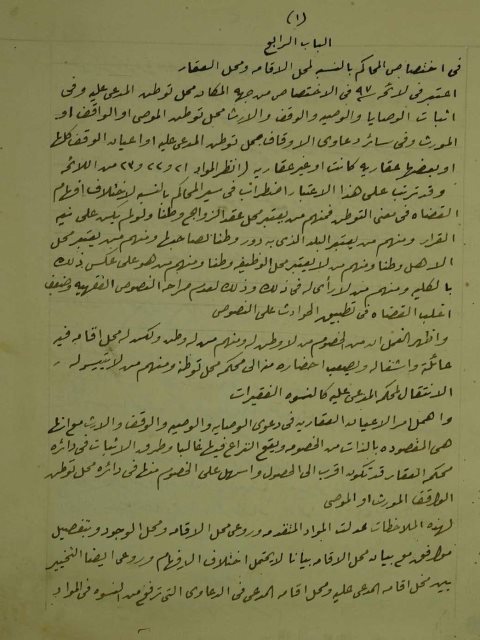 (١)
الباب الرابع
فى اختصاص المحاكم بالنسبة لمحل الاقامه ومحل العقار
اعتبر فى لائحة سنة ٩٧ فى الاختصاص من جهة المكان محل توطن المدعى عليه وفى
اثبات الوصايا والوصيه والوقف والارث محل توطن الموصى او الواقف او
المورث وفى سائر دعاوى الاوقاف محل توطن المدعى عليه او اعيان الوقف كلها
او بعضها عقاريه كانت او غير عقاريه (انظر المواد ٢١ و ٢٢ و ٢٣ من اللائحه
وقد ترتب على هذا الاعتبار اضطراب فى سير المحاكم بالنسبه لاختلاف افهام
القضاه فى معنى التوطن فمنهم من يعتبر محل عقد الزواج وطنا ولو لم يكن على نية
القرار ومنهم من يعتبر البلد الذى به دور وطنا لصاحبها ومنهم من يعتبر محل
الاهل وطنا ومنهم من لا يعتبر محل الوظيفه وطنا ومنهم من هو على عكس ذلك
بالكليه ومنهم من لا رأى له فى ذلك وذلك لعدم صراحة النصوص الفقهيه وضعف
اغلب القضاه فى تطبيق الحوادث على النصوص
واظهر العمل ان من الخصوم من لا وطن له ومنهم من له وطن ولكن له محل اقامه فيه
عائلته واشغاله ويصعب احضاره منه الى محكمة محل توطنه ومنهم من لا يتيسر له
الانتقال لمحكمة المدعى عليه كالنسوه الفقيرات
واهمل امر الاعيان العقاريه فى دعوى الوصايه والوصيه والوقف والارث مع انها
هى المقصوده بالذات من الخصومه ويقع النزاع فيها غالبا وطرق الاثبات فى دائرة
محكمة العقار قد تكون اقرب الى الحصول واسهل على الخصوم منها فى دائرة محل توطن
الواقف او المورث او الموصى
لهذه الملاحظات عدلت المواد المتقدمه وروعى محل الاقامه ومحل الوجود وبتفصيل
مع بيان محل الاقامه بيانا لا يحتمل اختلاف الافهام وروعى ايضا التخيير
بين محل اقامة المدعى عليه ومحل اقامة المدعى فى الدعاوى التى ترفع من النسوه فى المواد